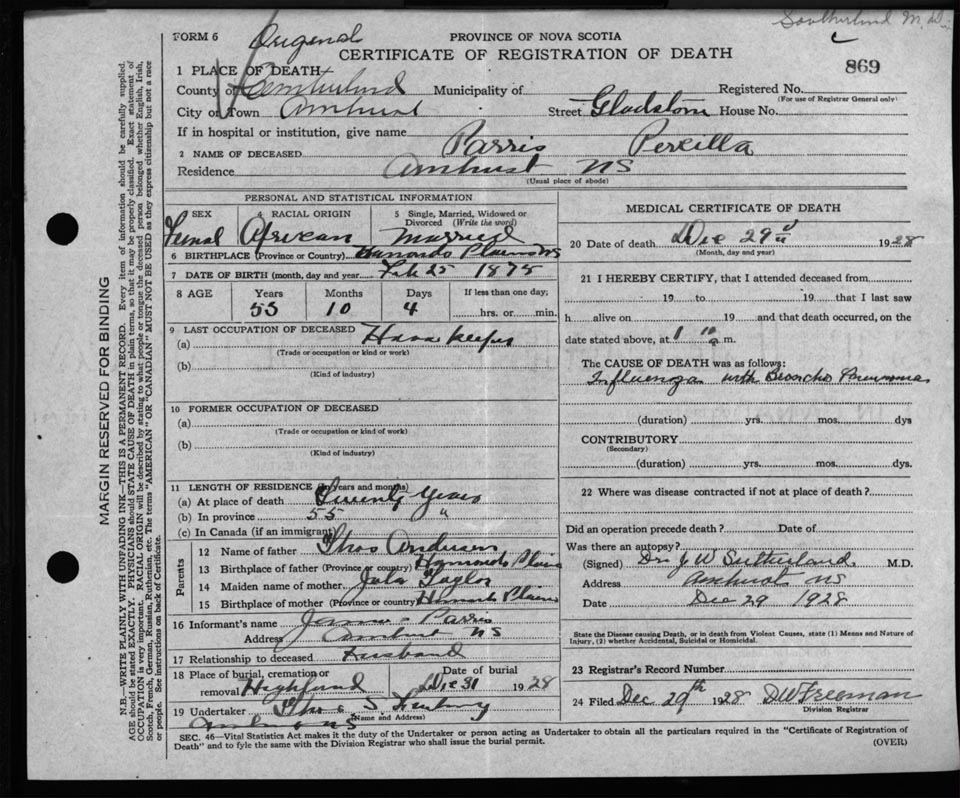 Southerland M. D.
FORM 6 Original PROVINCE OF NOVA SCOTIA
CERTIFICATE OF REGISTRATION OF DEATH
869
1 PLACE OF DEATH
County of Cumberland Municipality of Registered No.
(For use of Registrar General only)
City or Town Amherst Street Gladstom House No.
If in hospital or institution, give name
2 NAME OF DECEASED Parris Percilla
Residence Amhurst NS
(Usual place of abode)
PERSONAL AND STATISTICAL INFORMATION
3 SEX 4 RACIAL ORIGIN 5 Single, Married, Widowed or Divorced (Write the word)
Femal African Married
6 BIRTHPLACE (Province or Country) Plains NS
7 DATE OF BIRTH (month, day and year) Feb 25 1875
8 AGE Years Months Days If less than one day;
53 10 4 hrs. or min.
9 LAST OCCUPATION OF DECEASED
(a) House Keeper
(Trade or occupation or kind or work)
(b)
(Kind of industry)
10 FORMER OCCUPATION OF DECEASED
(a)
(Trade or occupation or kind of work)
(b)
(Kind of industry)
11 LENGTH OF RESIDENCE (In years and months)
(a) At place of death Twenty Years
(b) In province 55 "
(c) In Canada (if an immigrant)
Parents
12 Name of father Thos Andersen
13 Birthplace of father (Province or country) Hamonds Plains
14 Maiden name of mother Taylor
15 Birthplace of mother (Province or country) Plains
16 Informant's name Parris
Address Amhurst NS
17 Relationship to deceased Husband
18 Place of burial, cremation or removal Highland Date of burial Dec 31 1928
19 Undertaker Thos S.
(Name and Address)
NS
MEDICAL CERTIFICATE OF DEATH
20 Date of death Dec 29 1928
(Month, day and year)
21 I HEREBY CERTIFY, that I attended deceased from
19 to 19 that I last saw
h alive on 19 and that death occurred, on the
date stated above, at 1 10 a m.
The CAUSE OF DEATH was as follows:
Influenza with Broncho Pneumonia
(duration) yrs. mos. dys
CONTRIBUTORY
(Secondary)
(duration) yrs. mos. dys.
22 Where was disease contracted if not at place of death?
Did an operation precede death? Date of
Was there an autopsy?
(Signed) Dr J W Sutherland, M.D.
Address Amhurst NS
Date Dec 29 1928
State the Disease causing Death, or in death from Violent Causes, state (1) Means and Nature of
Injury, (2) whether Accidental, Suicidal or Homicidal.
23 Registrar's Record Number
24 Filed Dec 29th 1928 DW Freeman
Division Registrar
SEC. 46—Vital Statistics Act makes it the duty of the Undertaker or person acting as Undertaker to obtain all the particulars required in the "Certificate of Registration of
Death" and to fyle the same with the Division Registrar who shall issue the burial permit.
(OVER)
MARGIN RESERVED FOR BINDING
N.B.—WRITE PLAINLY WITH UNFADING INK—THIS IS A PERMANENT RECORD. Every item of information should be carefully supplied.
AGE should be stated EXACTLY. PHYSICIANS should STATE CAUSE OF DEATH in plain terms, so that it may be properly classified. Exact statement of
OCCUPATION is very important. RACIAL ORIGIN will be described by stating to what people or tongue the deceased person belonged whether English, Irish,
Scotch, French, German, Russian, Ruthenian, etc. The terms "AMERICAN" OR "CANADIAN" MUST NOT BE USED as they express citizenship but not a race
or people. See instructions on back of Certificate.